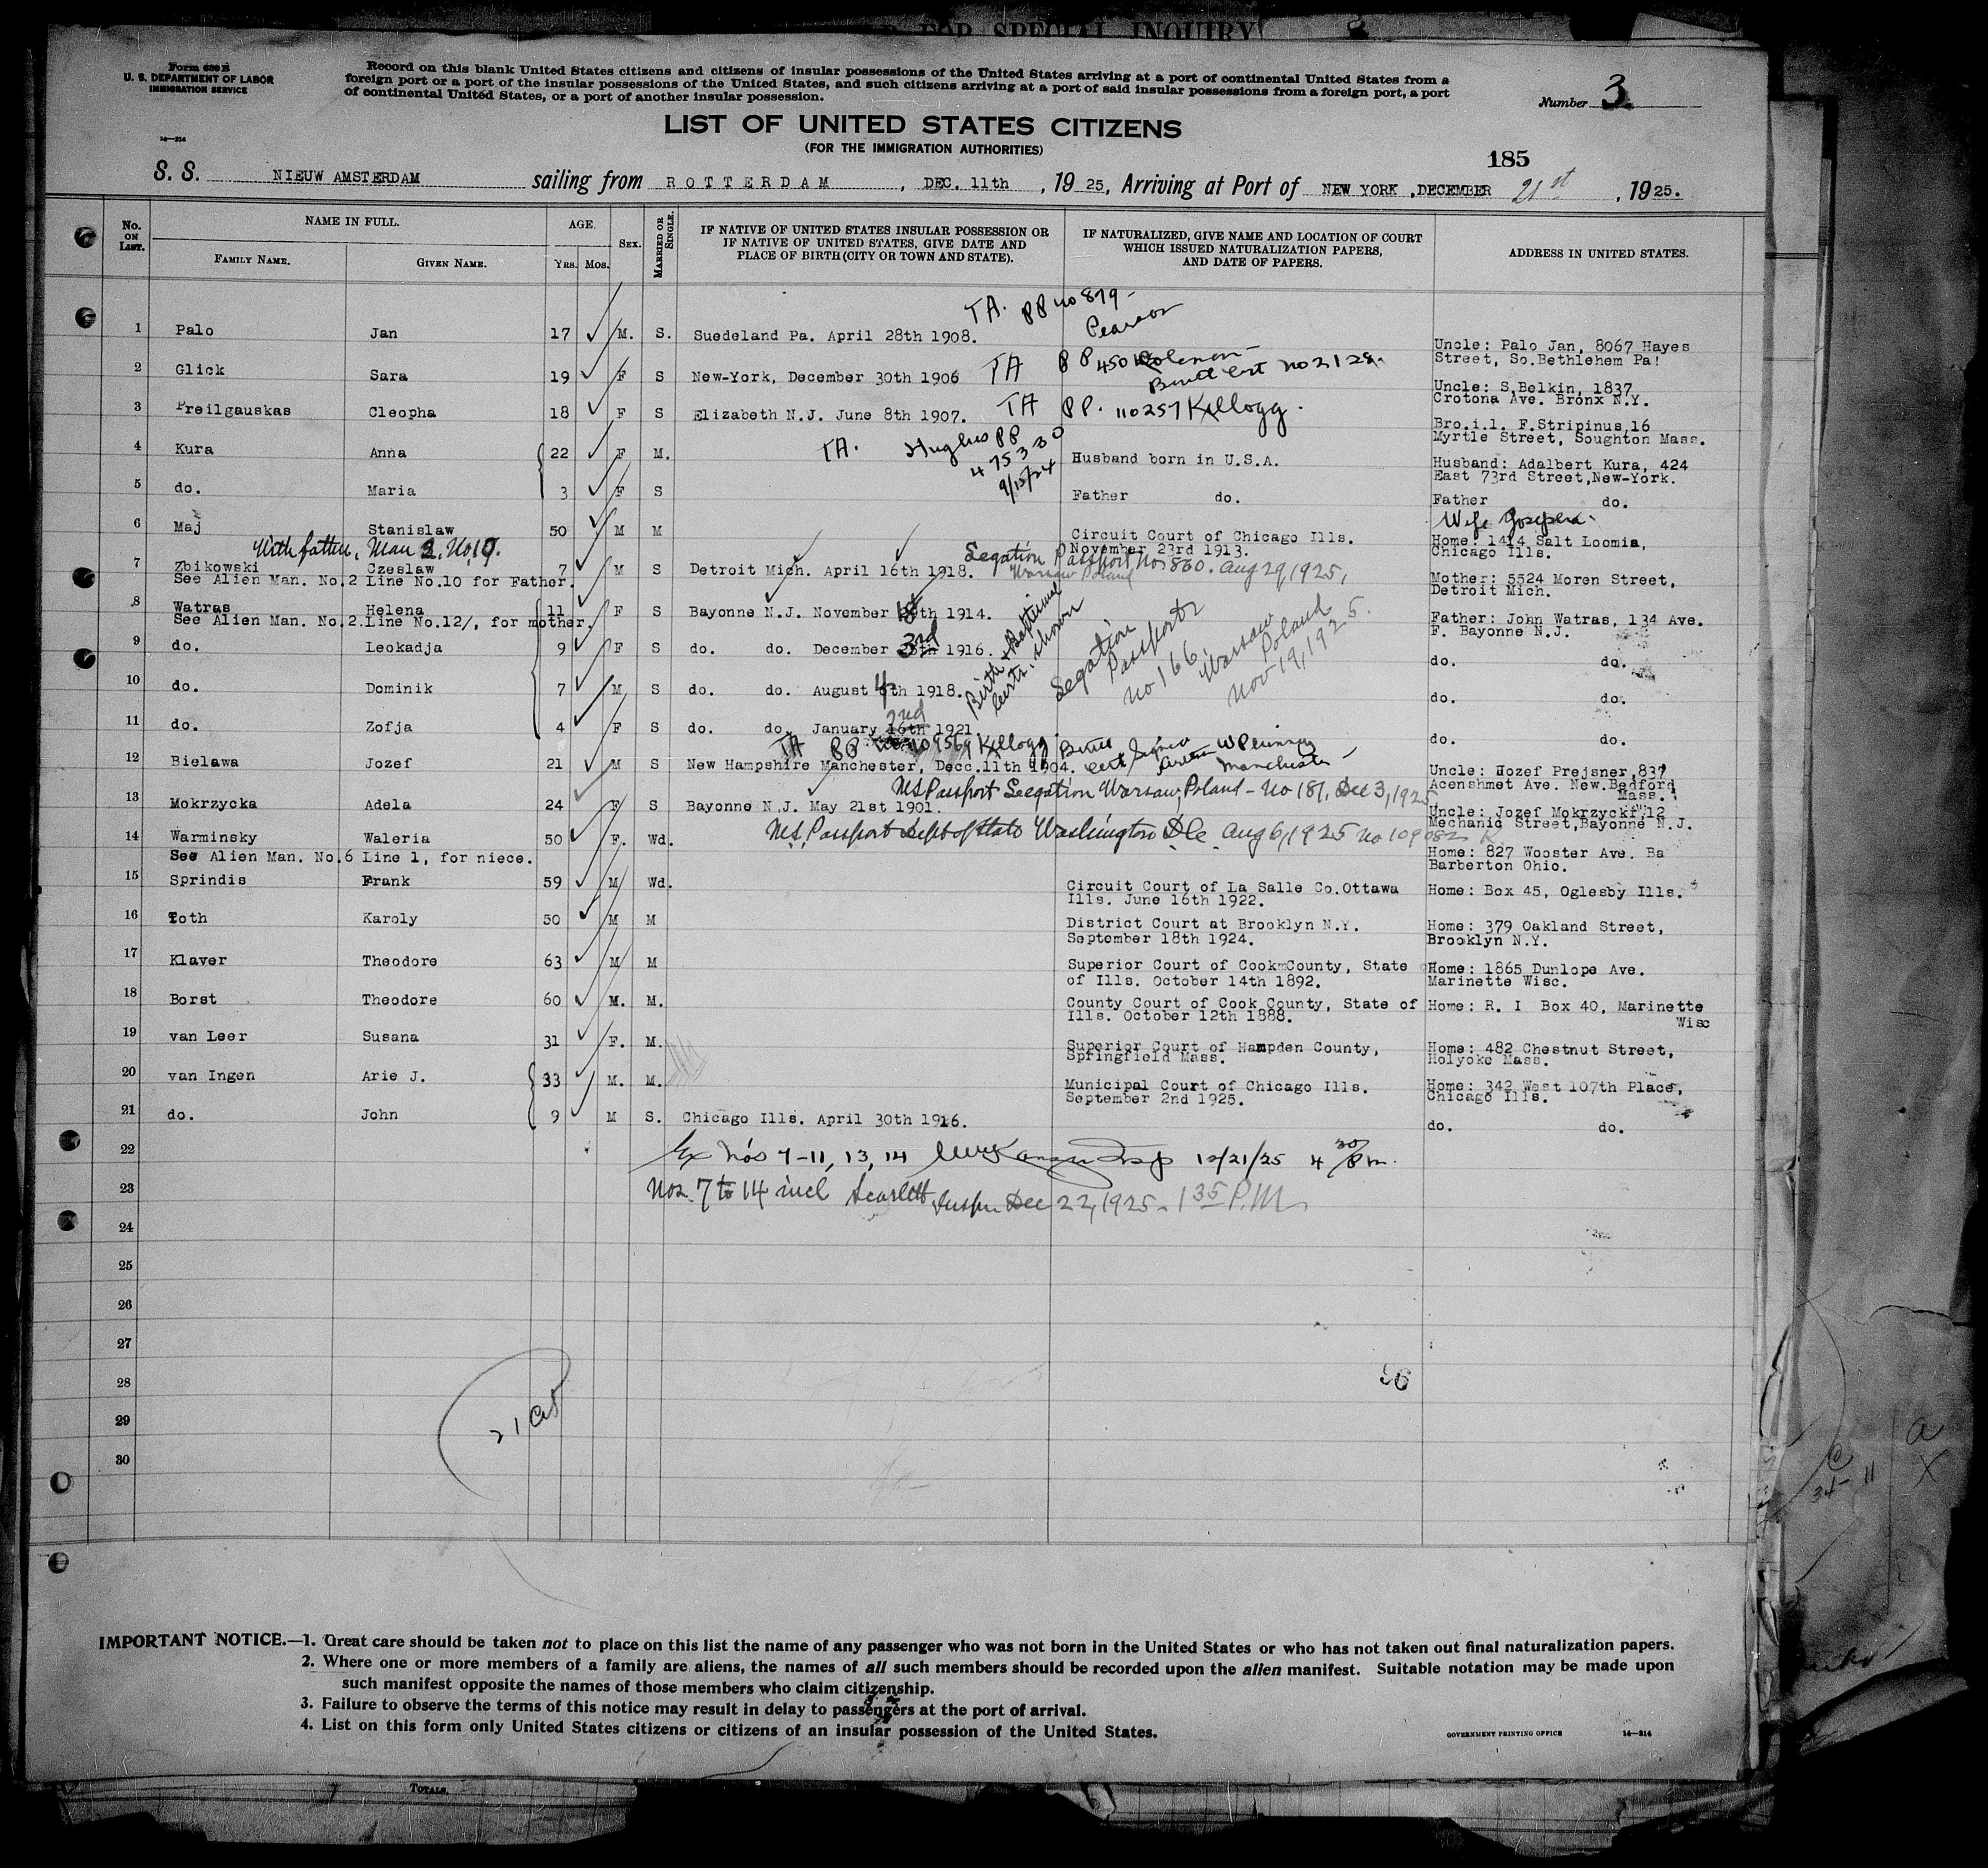 FOR SPECIAL INQUIRY
Form 630 B
U. S. DEPARTMENT OF LABOR
IMMIGRATION SERVICE
Record on this blank United States citizens and citizens of insular possessions of the United States arriving at a port of continental United States from a
foreign port or a port of the insular possessions of the United States, and such citizens arriving at a port of said insular possessions from a foreign port, a port
of continental United States, or a port of another insular possession.
Number 3
14—214
LIST OF UNITED STATES CITIZENS
(FOR THE IMMIGRATION AUTHORITIES)
185
S. S. NIEUW AMSTERDAM sailing from ROTTERDAM, DEC. 11th, 1925, Arriving at Port of NEW YORK, DECEMBER 21st, 1925.
No. ON LIST. NAME IN FULL. AGE. SEX. MARRIED OR SINGLE. IF NATIVE OF UNITED STATES INSULAR POSSESSION OR IF NATIVE OF UNITED STATES, GIVE DATE AND PLACE OF BIRTH (CITY OR TOWN AND STATE). IF NATURALIZED, GIVE NAME AND LOCATION OF COURT WHICH ISSUED NATURALIZATION PAPERS, AND DATE OF PAPERS. ADDRESS IN UNITED STATES.
FAMILY NAME. GIVEN NAME. YRS. MOS.
TA. PP no 879 -
Pearson
1 Palo Jan 17 M. S. Suedeland Pa. April 28th 1908. Uncle: Palo Jan, 8067 Hayes
Street, So.Bethlehem Pa!
2 Glick Sara 19 F S New-York, December 30th 1906 TA PP 450 Birth Cert no 2129. Uncle: S,Belkin, 1837
Crotona Ave. Bronx N.Y.
3 Preilgauskas Cleopha 18 F S Elizabeth N.J. June 8th 1907. TA PP. 110257 Kellogg. Bro.i.l. F.Stripinus,16
Myrtle Street, Soughton Mass.
4 Kura Anna 22 F M. TA. Hughes PP 475330 9/15/24 Husband born in U.S.A. Husband: Adalbert Kura, 424
East 73rd Street,New-York.
5 do. Maria 3 F S Father do. Father do.
Wife Josefera.
6 Maj Stanislaw 50 M M Circuit Court of Chicago Ills.
November 23rd 1913. Home: 1414 Salt Loomia,
Chicago Ills.
With father, Man 2. No. 10.
7 Zbikowski Czeslaw 7 M S Detroit Mich. April 16th 1918. Legation Passport No. 860. Aug 29, 1925, Warsaw Poland Mother: 5524 Moren Street,
Detroit Mich.
See Alien Man. No.2 Line No.10 for Father.
8 Watras Helena 11 F S Bayonne N.J. November 18th 1914. Father: John Watras, 134 Ave.
F. Bayonne N.J.
See Alien Man. No.2.Line No.12/, for mother.
9 do. Leokadja 9 F S do. do. December 3rd 1916. do. do.
Birth & Baptismal Certs. shown
Legation Passport No 166, Warsaw Poland Nov 19, 1925.
10 do. Dominik 7 M S do. do. August 4th 1918. do. do.
11 do. Zofja 4 F S do. do. January 2nd 16th 1921 do. do.
TA PP 109569 Kellogg. Birth Cert Signed Manchester -
12 Bielawa Jozef 21 M S New Hampshire Manchester, Decc.11th 1904. Uncle: Hozef Prejsner,837
Acenshmet Ave. New.Bedford
Mass.
US Passport Legation Warsaw, Poland - No 181, Dec 3, 1925
13 Mokrzycka Adela 24 F S Bayonne N.J. May 21st 1901. Uncle: Jozef Mokrzycki,12
Mechanic Street,Bayonne N.J.
14 Warminsky Waleria 50 F. Wd. U.S. Passport Dept of State Washington D.C. Aug 6, 1925 No 109082 K
See Alien Man. No.6 Line 1, for niece. Home: 827 Wooster Ave. Ba
Barberton Ohio.
15 Sprindis Frank 59 M Wd. Circuit Court of La Salle Co.Ottawa
Ills. June 16th 1922. Home: Box 45, Oglesby Ills.
16 Toth Karoly 50 M M District Court at Brooklyn N.Y.
September 18th 1924. Home: 379 Oakland Street,
Brooklyn N.Y.
17 Klaver Theodore 63 M M Superior Court of Cook County, State of
of Ills. October 14th 1892. Home: 1865 Dunlope Ave.
Marinette Wisc.
18 Borst Theodore 60 M. M. County Court of Cook County, State of
Ills. October 12th 1888. Home: R. I Box 40, Marinette
Wisc
19 van Leer Susana 31 F. M. Superior Court of Hampden County,
Springfield Mass. Home: 482 Chestnut Street,
Holyoke Mass.
20 van Ingen Arie J. 33 M. M. Municipal Court of Chicago Ills.
September 2nd 1925. Home: 342 West 107th Place,
Chicago Ills.
21 do. John 9 M S. Chicago Ills. April 30th 1916. do. do.
22 Ex Nos 7-11, 13, 14 Insp 12/21/25 4 30 Pm.
23 Nos. 7 to 14 incl Scarlett, Inspr Dec 22, 1925 - 1 35 P.M.
24
25
26
27
28
29
30
IMPORTANT NOTICE.—1. Great care should be taken not to place on this list the name of any passenger who was not born in the United States or who has not taken out final naturalization papers.
2. Where one or more members of a family are aliens, the names of all such members should be recorded upon the alien manifest. Suitable notation may be made upon
such manifest opposite the names of those members who claim citizenship.
3. Failure to observe the terms of this notice may result in delay to passengers at the port of arrival.
4. List on this form only United States citizens or citizens of an insular possession of the United States.
GOVERNMENT PRINTING OFFICE 14—214
TOTALS.